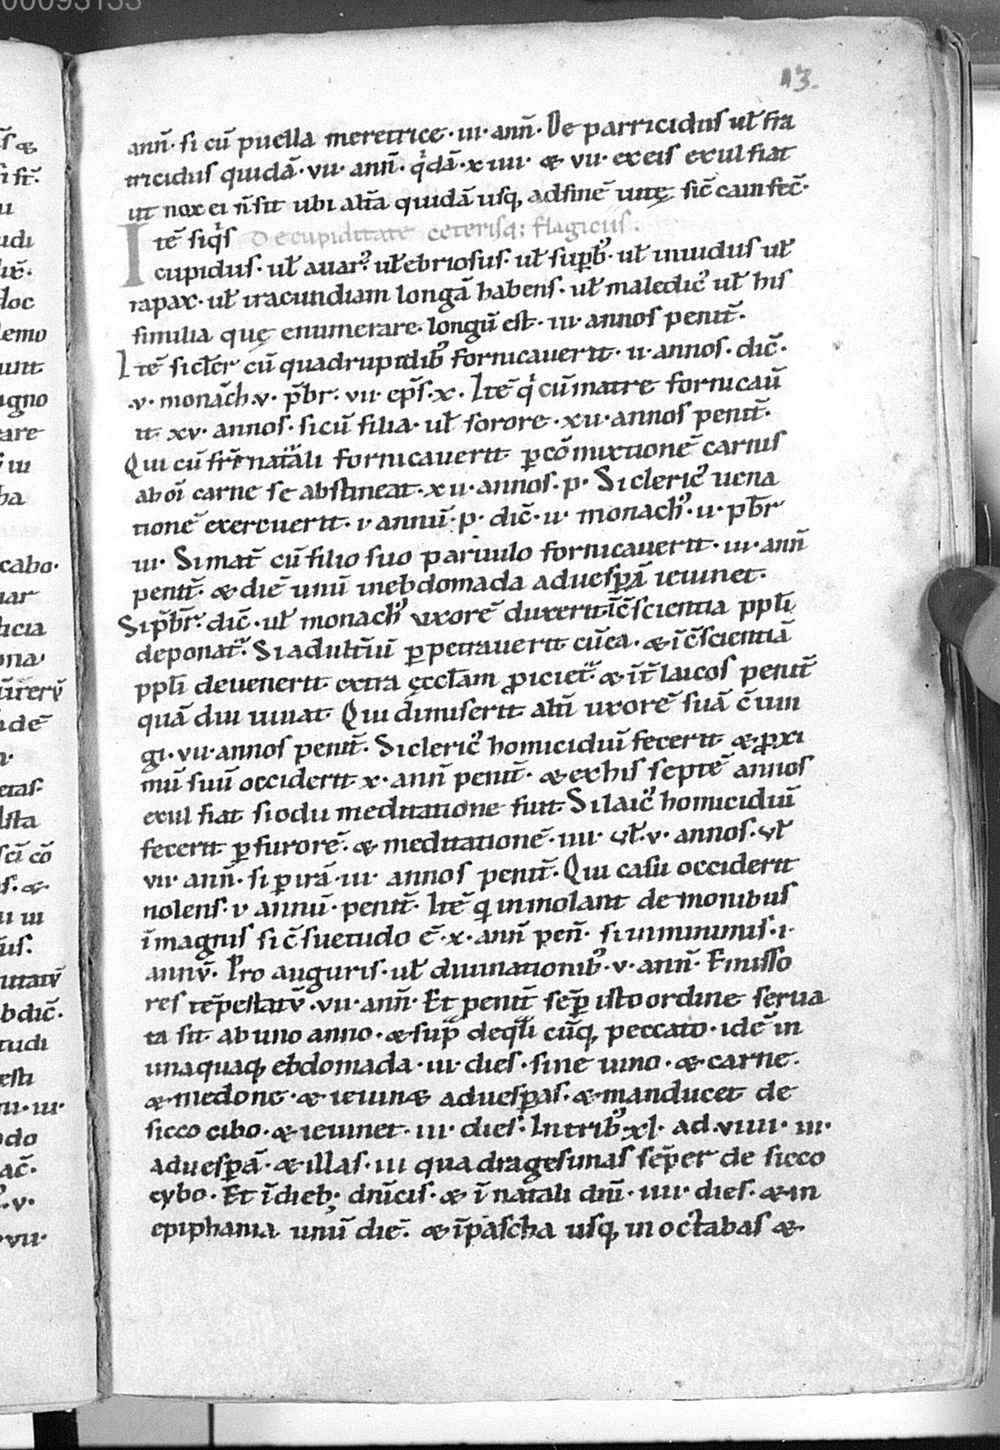 00093133
13.
ann̄· si cū puella meretrice· iii· ann̄· De parricidiis ul̄ fra
tricidiis quidā· vii· ann̄· q̇dā· x iiii· & vii· ex eis exul fiat
ut nox ei n̄ sit ubi alt̄a quidā usq; ad finē uitę sic̄ cain fec̄·
Itē siq̇s De cupiditate ceterisq; flagiciis·
cupidus· ul̄ auar᷒ ul̄ ebriosus· ul̄ sup̄b᷒· ul̄ inuidus ul̄
rapax· ul̄ iracundiam longā habens· ul̄ maledic᷒ ul̄ his
similia quę enumerare longū est· iii· annos penit̄·
Itē si cler̄ cū quadrupidib᷒ fornicauerit· ii· annos· dic̄·
v· monac̄h· v· p̄br· vii· ep̄s· x· Itē q̇ cū matre fornicaū
it xv· annos· si cū filia· ul̄ sorore· xii· annos penit̄·
Qui cū fr̄e nat̄ali fornicauerit p̱ cōmixtionē carnis
ab oī carne se abstineat· x ii· annos· p· Si cleric᷒ uena
tionē exercuerit· i· annū· p· dic̄· ii· monach᷒· ii· p̄br
iii· Si mat̄ cū filio suo paruulo fornicauerit· iii· ann̄
penit̄· & diē unū in ebdomada ad uesp̱ā ieiunet·
Si p̄br̄· dic̄· ul̄ monach᷒ uxorē duxerit īc̄scientia ppl̄i
deponat᷑· Si adult̄iū p̱petrauerit cū ea· & ī c̄scientiā
ppl̄i deuenerit extra ęccl̄am p̱iciet᷑ & it̄ laicos penit̄
quā diu uiuat· Qui dimiserit alt̄i uxorē suā c̄iun
gi· vii· annos penit̄· Si cleric᷒ homicidiū fecerit & p̱xi
mū suū occiderit x· ann̄ penit̄· & ex his septē annos
exul fiat si odii meditatione fuit Si laic᷒ homicidiū
fecerit p̱ furorē· & meditationē· iiii· ul̄· v· annos· ul̄
vii· ann̄· si p̱ irā· iii· annos penit̄· Qui casu occiderit
nolens· v annū· penit̄· Itē q̇ inmolant demonibus
ī magnis si c̄suetudo ē· x· ann̄ pen̄· si in minimis· i·
annū· Pro auguriis· ul̄ diuinationib᷒· v· ann̄· Emisso
res tēpestatū· vii· ann̄· Et penit̄ sep̱ isto ordine serua
ta sit· ab uno anno· & sup̄ deq̇li cūq; peccato· idē in
unaquaq; ebdomada· iii· dies· sine uino· & carne·
& medone· & ieiun& ad uesp̱as· & manducet de
sicco cibo· & ieiunet· iii· dies· In trib᷒ xl· ad· viiii· iii·
ad uesp̱ā· & illas· iii quadragesimas sēper de sicco
cybo· Et ī dieb; dn̄icis· & ī natali dn̄i· iiii· dies· & in
epiphania unū diē· & ī pascha usq; in octabas &